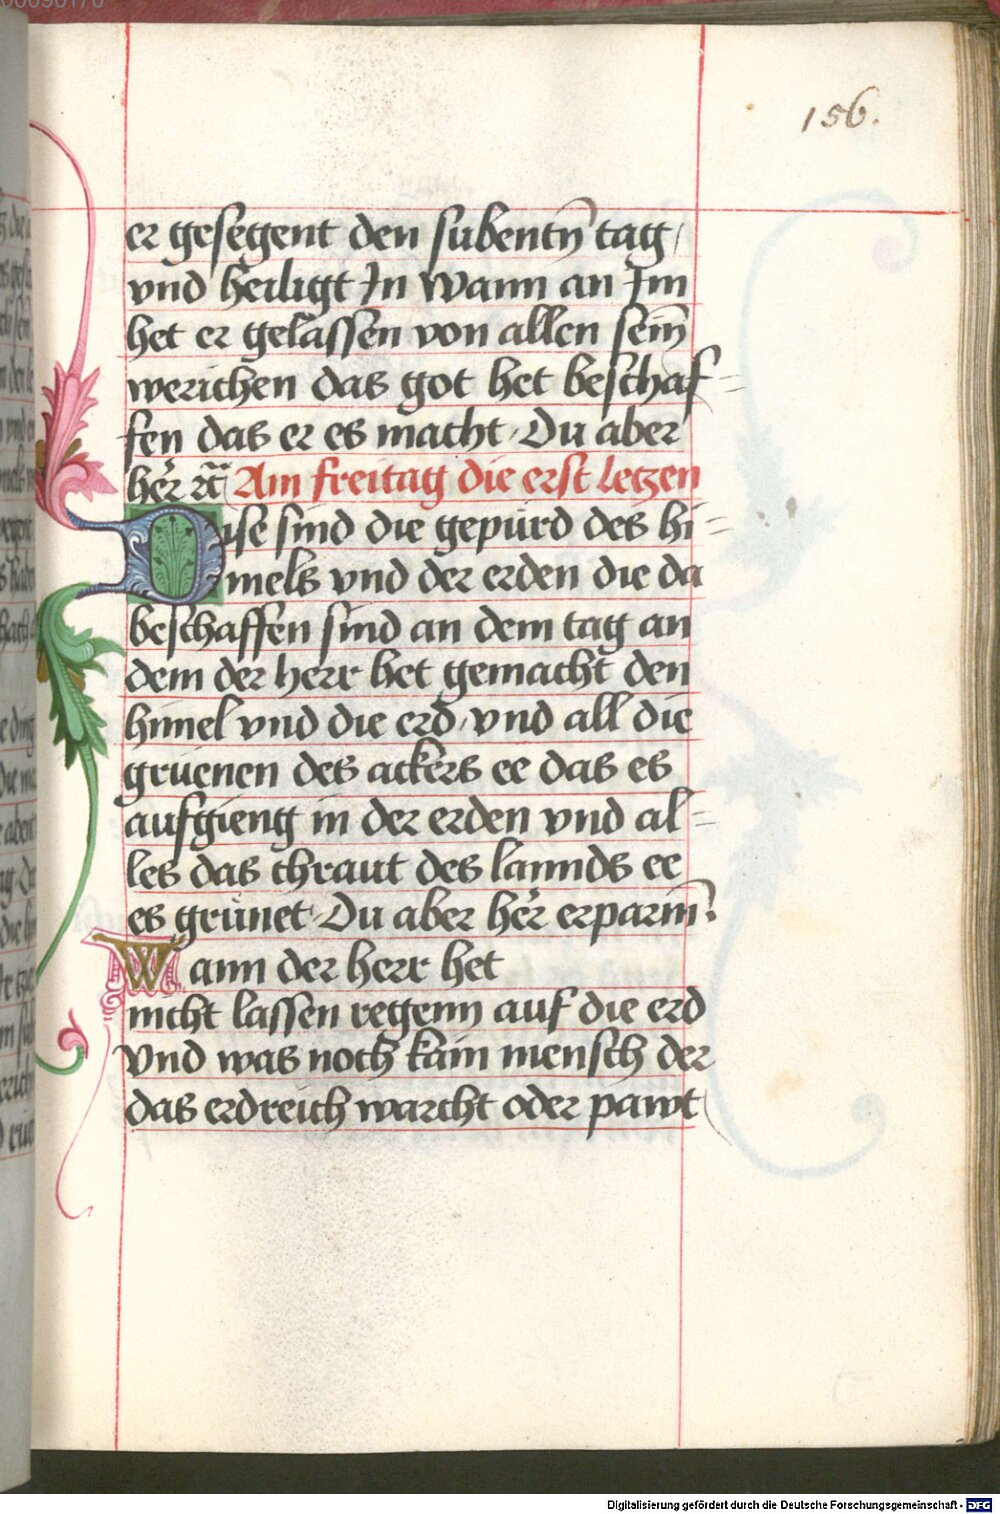 156.
er gesegent den subentn̄ tag /
vnd heiligt In Wann an Im
het er gelassen von allen sein̄
werichen das got het beschaf=
fen das er es macht · Du aber
her̄ ꝛc̄ Am freitag die erst letzen
Dise sind die gepurd des hi=
mels vnd der erden die da
beschaffen sind an dem tag an
dem der herr het gemacht den
himel vnd die erd · vnd all die
gruenen des ackers ee das es
aufgieng in der erden vnd al=
les das chraut des lannds ee
es grunet · Du aber her̄ erparm̄ .
Wann der herr het
nicht lassen regenn auf die erd
vnd was noch kain mensch der
das erdreich warcht oder pawt
Digitalisierung gefördert durch die Deutsche Forschungsgemeinschaft - DFG